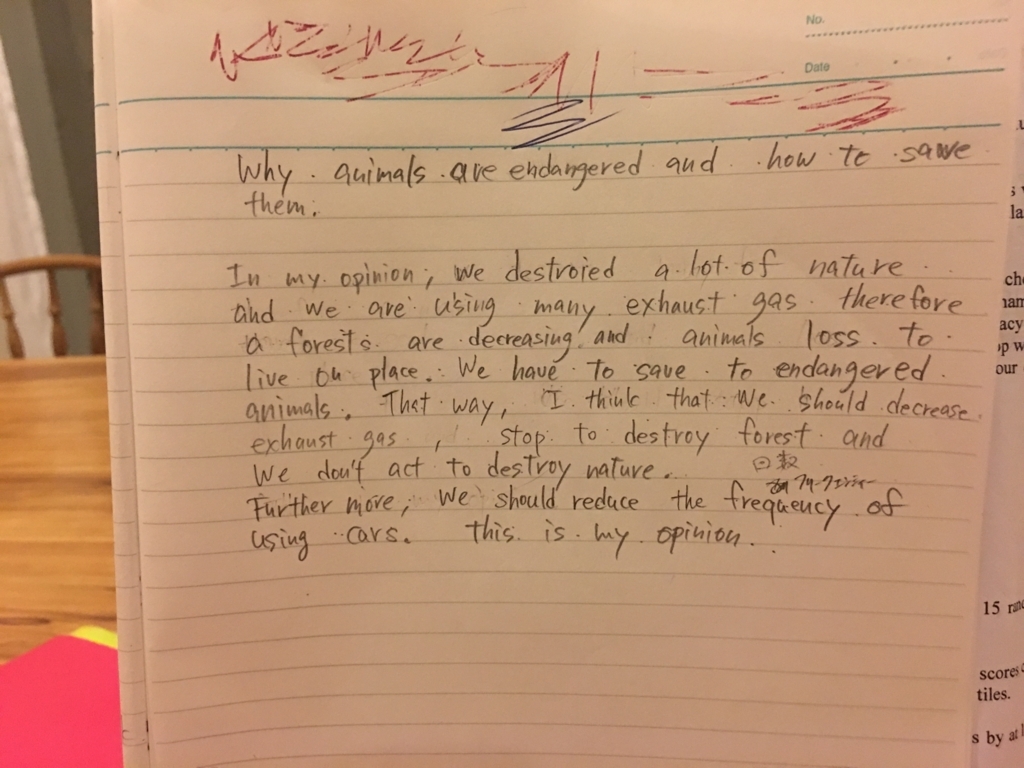 No.
Date
Why animals are endangered and how to save
them.
In my opinion, we destroied a lot of nature
and we are using many exhaust gas therefore
a forests are decreasing and animals loss to
live on place. We have to save to endangered
animals. That way, I think that We should decrease
exhaust gas, stop to destroy forest and
We don't act to destroy nature.
回数
フリークエンシー
Further more, we should reduce the frequency of
using cars. this is my opinion.
15
scores
tiles.
s by at